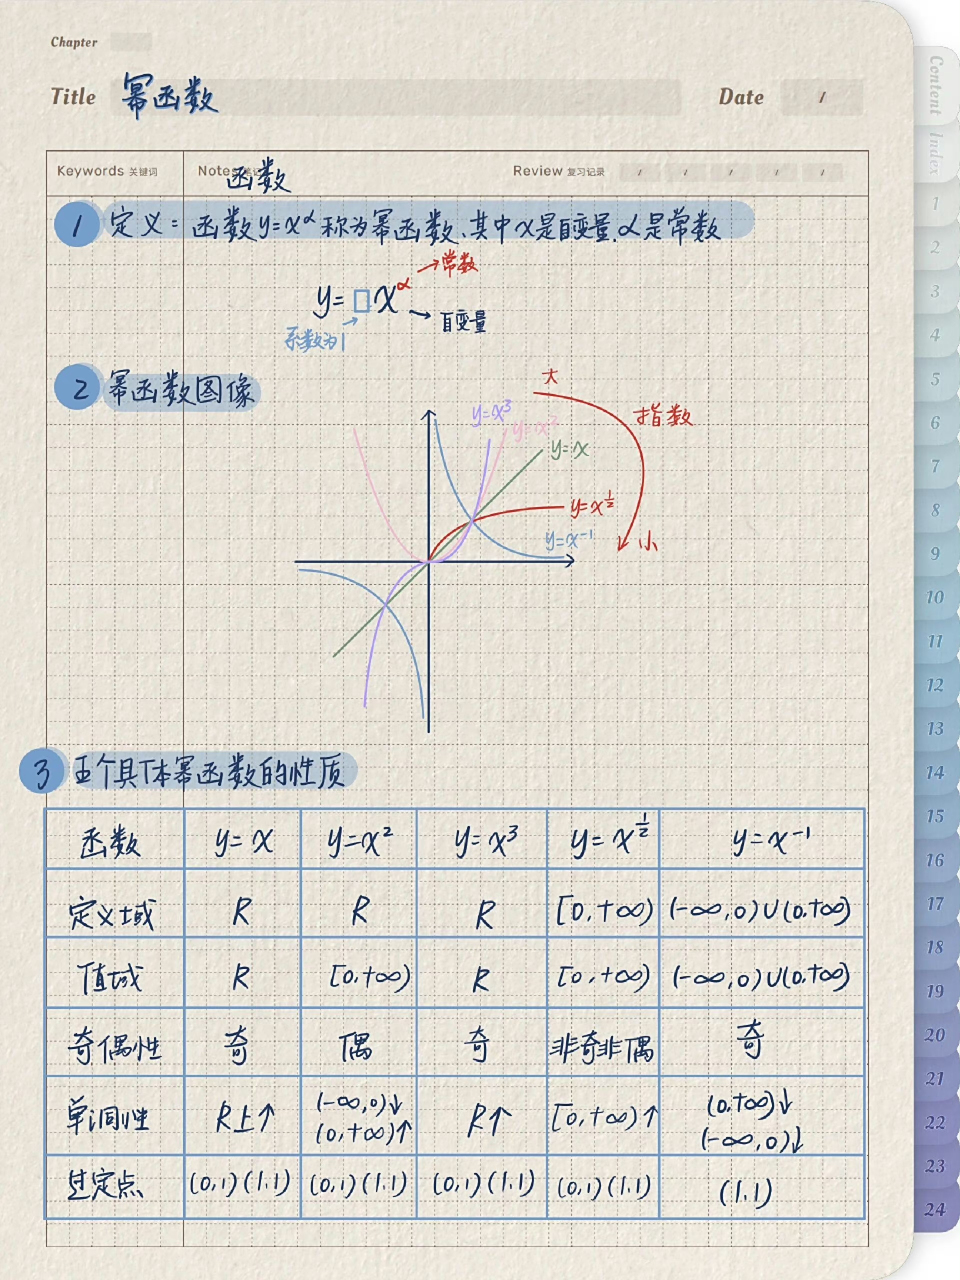 Chapter
Title 幂函数 Date /
Keywords 关键词 Notes 笔记 函数 Review 复习记录 / / / / /
1 定义：函数y=x^α称为幂函数、其中x是自变量,α是常数
→常数
y=□x^α
→自变量
系数为1
2 幂函数图像
大
y=x³
y=x²
指数
y=x
y=x^½
y=x⁻¹
小
3 五个具体幂函数的性质
函数 y=x y=x² y=x³ y=x^½ y=x⁻¹
定义域 R R R [0,+∞) (-∞,0)∪(0,+∞)
值域 R [0,+∞) R [0,+∞) (-∞,0)∪(0,+∞)
奇偶性 奇 偶 奇 非奇非偶 奇
单调性 R上↑ (-∞,0)↓ (0,+∞)↑ R↑ [0,+∞)↑ (0,+∞)↓ (-∞,0)↓
过定点 (0,1)(1,1) (0,1)(1,1) (0,1)(1,1) (0,1)(1,1) (1,1)
Content
Index
1
2
3
4
5
6
7
8
9
10
11
12
13
14
15
16
17
18
19
20
21
22
23
24